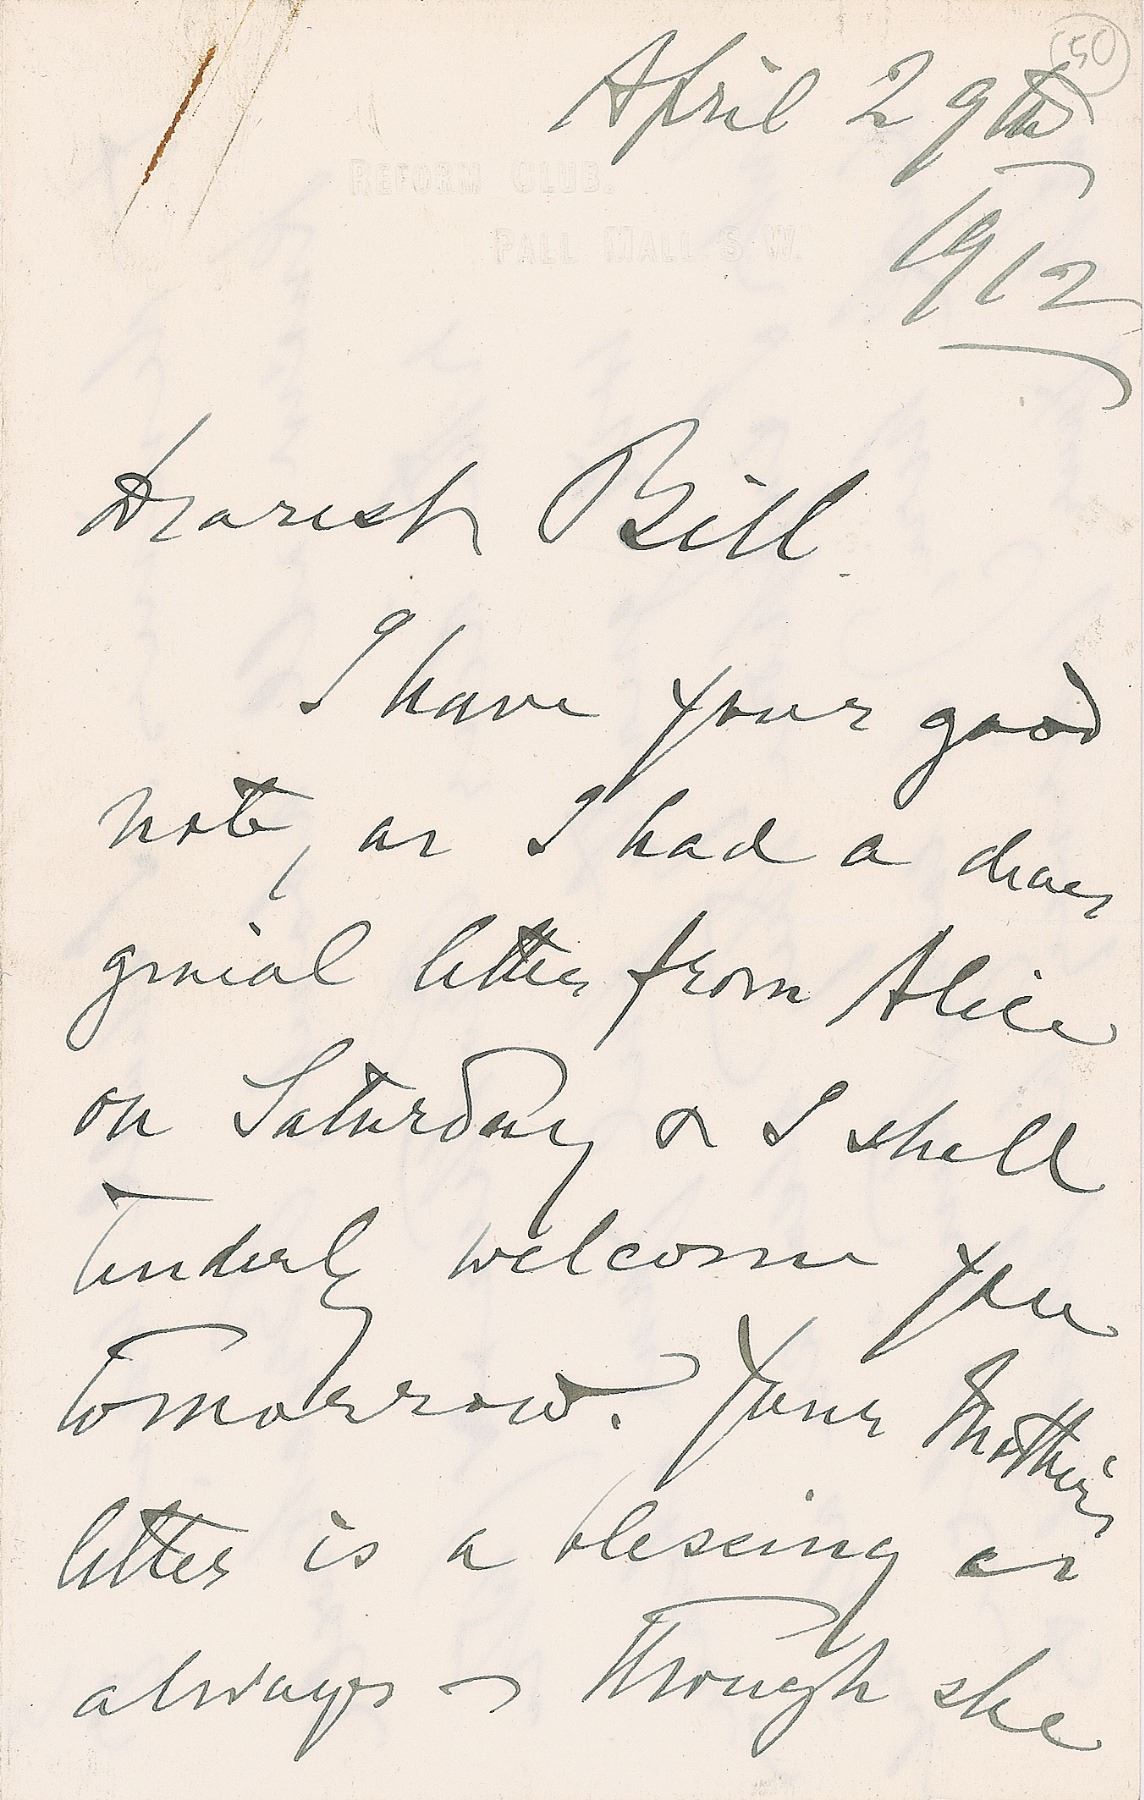 50
April 29th
REFORM CLUB.
PALL MALL S. W.
1912
Dearest Bill.
I have your good
note, as I had a dear
genial letter from Alice
on Saturday & I shall
tenderly welcome you
tomorrow. Your Mother's
letter is a blessing as
always — though she